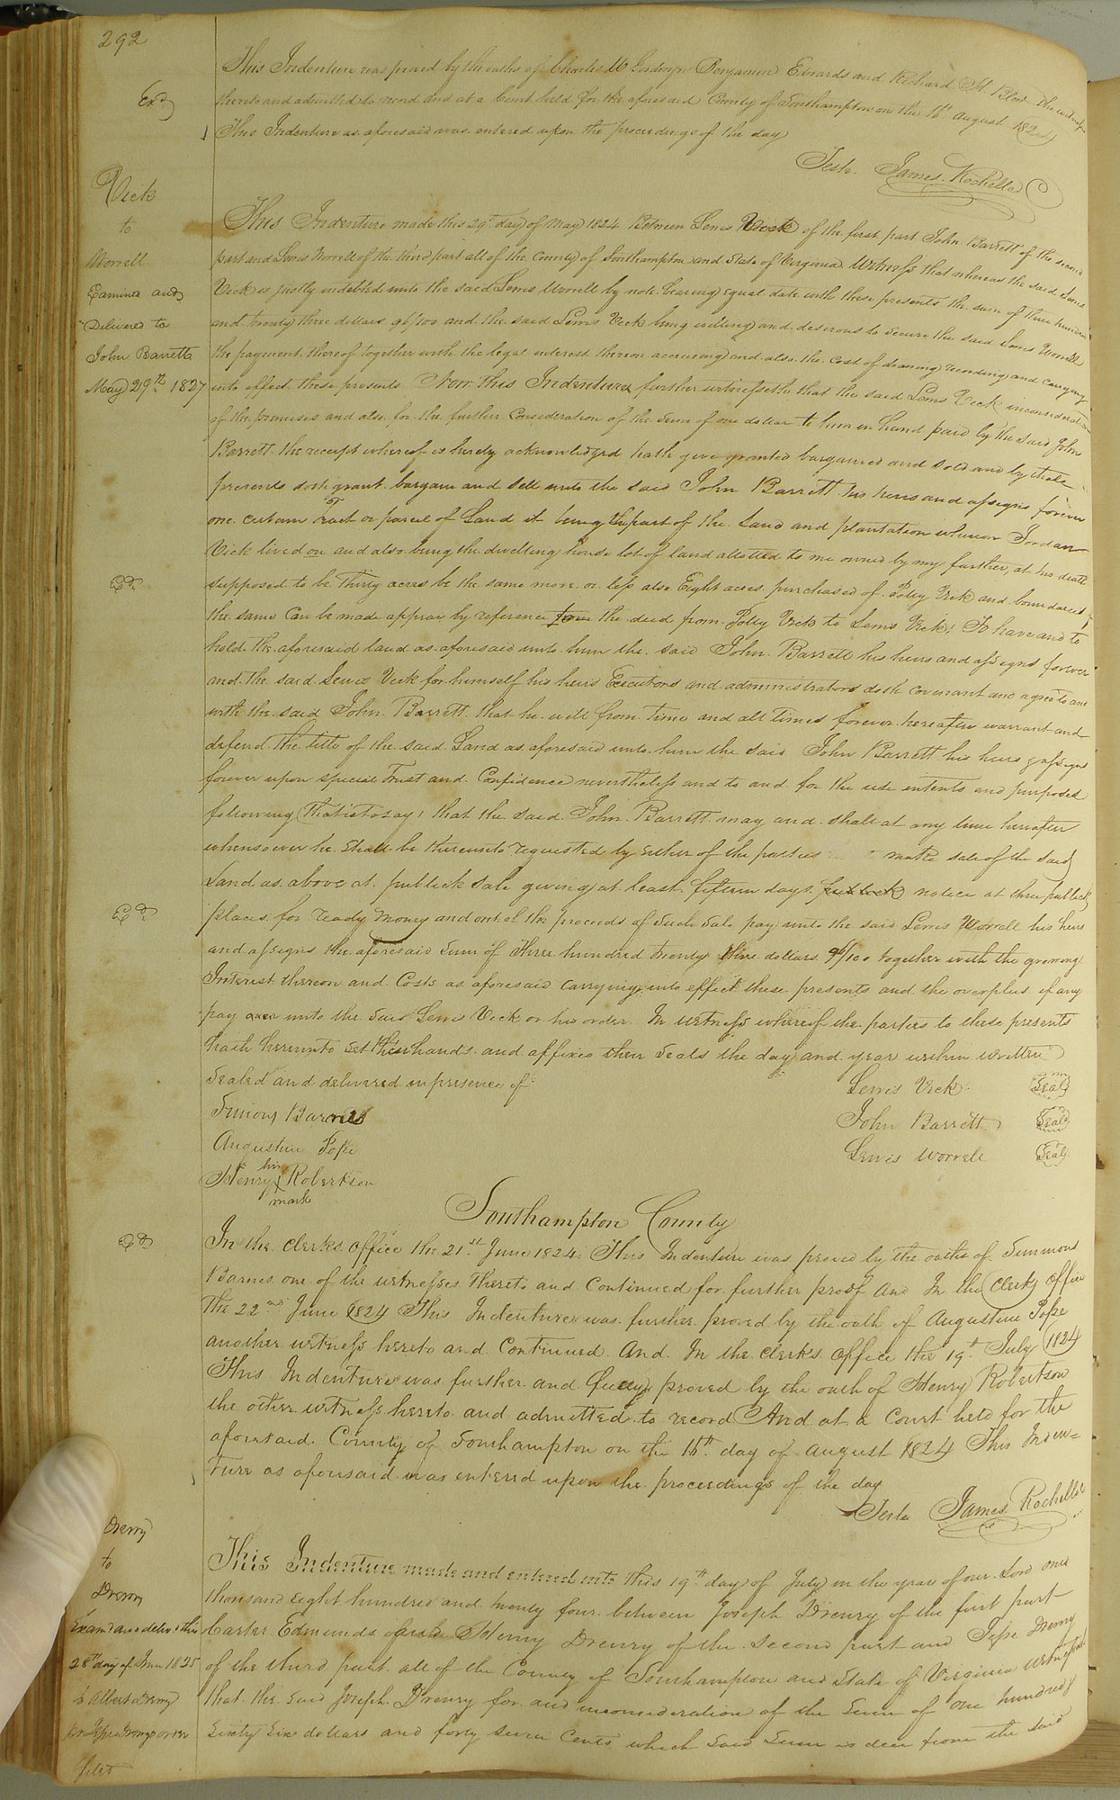 292
This Indenture was proved by the oaths of Charles W Benjamin Edwards and Richard H. the witnesses
Exd
thereto and admitted to record and at a Court held for the aforesaid County of Southampton on the 16th August 1824
This Indenture as aforesaid was entered upon the proceedings of the day
Teste. James Rochelle
Vick
to
Worrell
Examined and
Delivered to
John Barrett
May 29th 1827
This Indenture made this 29th day of May 1824 Between Lewis Vick of the first part John Barrett of the second
part and Lewis Worrell of the third part all of the County of Southampton and State of Virginia Witness that whereas the said Lewis
Vick is justly indebted unto the said Lewis Worrell by note bearing equal date with these presents the sum of three hundred
and twenty three dollars 96/100 and the said Lewis Vick being willing and desirous to secure the said Lewis Worrell
the payment thereof together with the legal interest thereon accruing and also the cost of drawing recording and carrying
into effect these presents Now this Indenture further witnesseth that the said Lewis Vick in consideration
of the premises and also for the further Consideration of the sum of one dollar to him in hand paid by the said John
Barrett the receipt whereof is hereby acknowledged hath give granted bargained and sold and by these
presents doth grant bargain and sell unto the said John Barrett his heirs and assigns forever
one certain Tract or parcel of Land it being the part of the Land and plantation whereon Jordan
Vick lived on and also being the dwelling house lot of land allotted to me owned by my further, at his death
supposed to be thirty acres be the same more or less also Eight acres purchased of Polley Vick and boundaries
the same can be made appear by reference to the deed from Polley Vick to Lewis Vick; To have and to
hold the aforesaid land as aforesaid unto him the said John Barrett his heirs and assigns forever
and the said Lewis Vick for himself his heirs Executors and administrators doth covenant and agree to and
with the said John Barrett that he will from time and all times forever hereafter warrant and
defend the title of the said Land as aforesaid unto him the said John Barrett his heirs & assigns
forever upon special Trust and Confidence nevertheless and to and for the use intents and purposes
following (that is to say) that the said John Barrett may and shall at any time hereafter
whensoever he shall be thereunto requested by either of the parties make sale of the said
Land as above at publick sale giving at least fifteen days notice at three publick
places for ready money and out of the proceeds of such sale pay unto the said Lewis Worrell his heirs
and assigns the aforesaid sum of three hundred twenty three dollars 96/100 together with the growing
Interest thereon and Costs as aforesaid carrying into effect these presents and the overplus if any
pay over unto the said Lewis Vick or his order. In witness whereof the parties to these presents
hath hereunto set their hands and affixed their seals the day and year within written
Sealed and delivered in presence of
Lewis Vick (Seal)
Simions Barnes
John Barrett (Seal)
Augustin Pope
Lewis Worrell (Seal)
his
Henry X Robertson
mark
Southampton County
In the clerks office the 21st June 1824 This Indenture was proved by the oaths of Simmons
Barnes one of the witnesses thereto and Continued for further proof And In the Clerks office
The 22nd June 1824 This Indenture was further proved by the oath of Augustine Pope
another witness hereto and Continued And In the clerks office the 19th July 1824
This Indenture was further and fully proved by the oath of Henry Robertson
the other witness hereto and admitted to record And at a Court held for the
aforesaid County of Southampton on the 16th day of August 1824 This Inden=
ture as aforesaid was entered upon the proceedings of the day
Teste James Rochelle
Drewry
to
Drewry
Exam'd and deliv'd this
28th day of June 1825
to Albert Drewry
filed
This Indenture made and entered into this 19th day of July in the year of our Lord one
thousand eight hundred and twenty four between Joseph Drewry of the first part
Carter Edmunds Henry Drewry of the second part and Jesse Drewry
of the third part all of the County of Southampton and State of Virginia witnesseth
that the said Joseph Drewry for and inconsideration of the Sum of one hundred
sixty six dollars and forty seven Cents which said Sum is due from the said